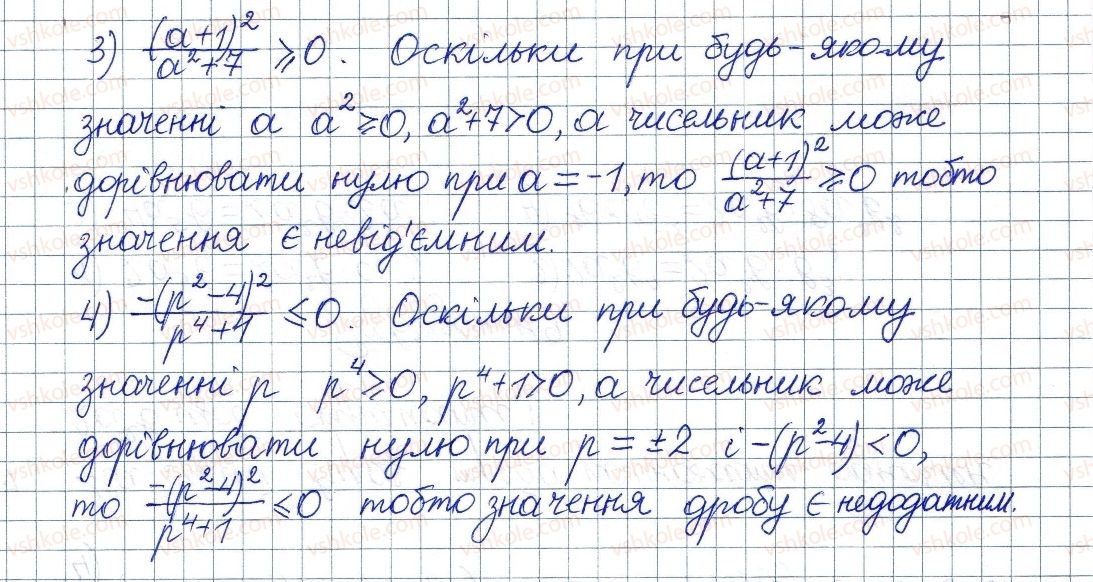 3) (a+1)²/(a²+7) ⩾ 0. Оскільки при будь-якому
значенні a a²⩾0, a²+7>0, а чисельник може
дорівнювати нулю при a = -1, то (a+1)²/(a²+7) ⩾ 0 тобто
значення є невід'ємним.
4) -(p²-4)²/(p⁴+4) ⩽ 0. Оскільки при будь-якому
значенні p p⁴⩾0, p⁴+1>0, а чисельник може
дорівнювати нулю при p = ±2 і -(p²-4)<0,
то -(p²-4)²/(p⁴+1) ⩽ 0 тобто значення дробу є недодатним.